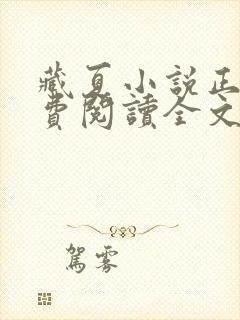 藏夏小說正
費閱讀全文
駕霧